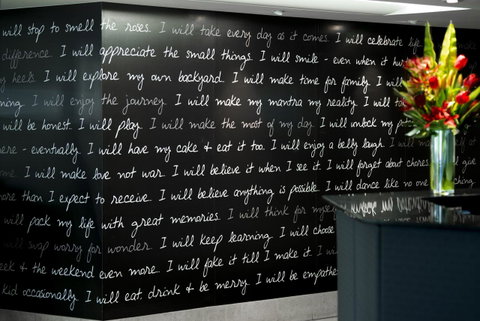 will stop to smell the roses. I will take every day as it comes. I will celebrate life
difference. I will appreciate the small things. I will smile - even when it hur
heels. I will explore my own backyard. I will make time for family. I will
ning. I will enjoy the journey. I will make my mantra my reality. I will
will be honest. I will play. I will make the most of my day. I will unlock my po
here - eventually. I will have my cake & eat it too. I will enjoy a belly laugh. I
will make love not war. I will believe it when I see it. I will forget about chores. will give
more than I expect to receive. I will believe anything is possible. I will dance like no one ching.
will pack my life with great memories. I will think for myse
will swap worry for wonder. I will keep learning. I will choose
eek & the weekend even more. I will fake it till I make it. I wi
kid occasionally. I will eat drink & be merry. I will be empathe